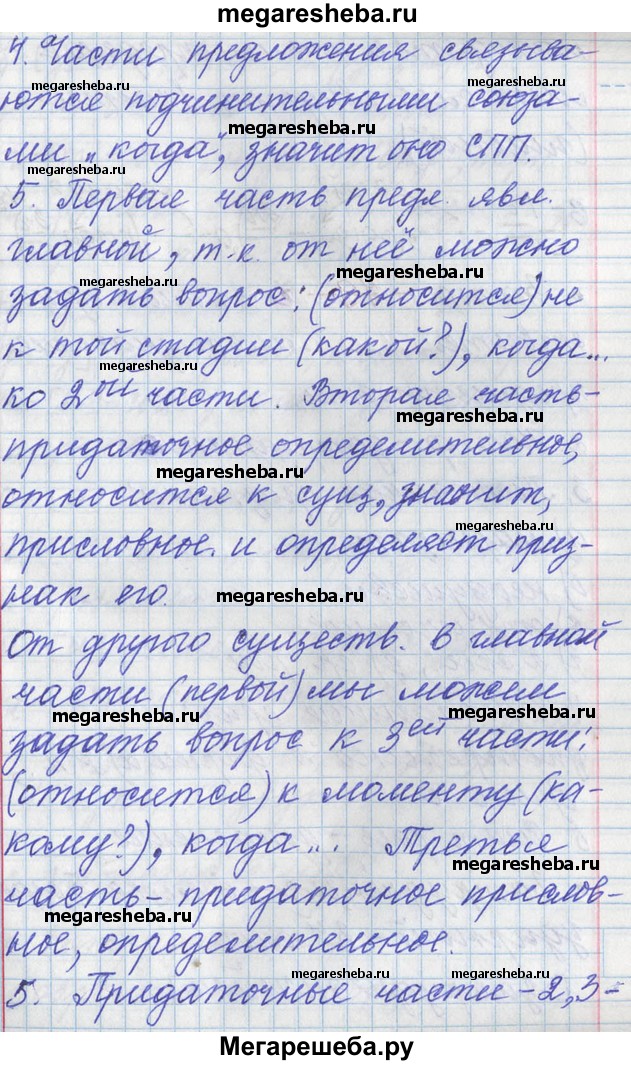 megaresheba.ru
4. Части предложения связыва-
megaresheba.ru megaresheba.ru
ются подчинительными союза-
megaresheba.ru
ми „когда", значит оно СПП.
megaresheba.ru
5. Первая часть предл. явл.
главной, т.к. от неё можно
megaresheba.ru megaresheba.ru
задать вопрос: (относится) не
к той стадии (какой?), когда...
megaresheba.ru
ко 2ой части. Вторая часть-
megaresheba.ru
придаточное определительное,
megaresheba.ru
относится к сущ, значит,
megaresheba.ru
присловное. и определяет приз-
нак его.
megaresheba.ru
От другого существ. в главной
части (первой) мы можем
megaresheba.ru megaresheba.ru
задать вопрос к 3ей части:
(относится) к моменту (ка-
кому?), когда... Третья
megaresheba.ru
часть- придаточное прислов-
megaresheba.ru
ное, определительное.
megaresheba.ru megaresheba.ru
5. Придаточные части -2,3=
Мегарешеба.ру